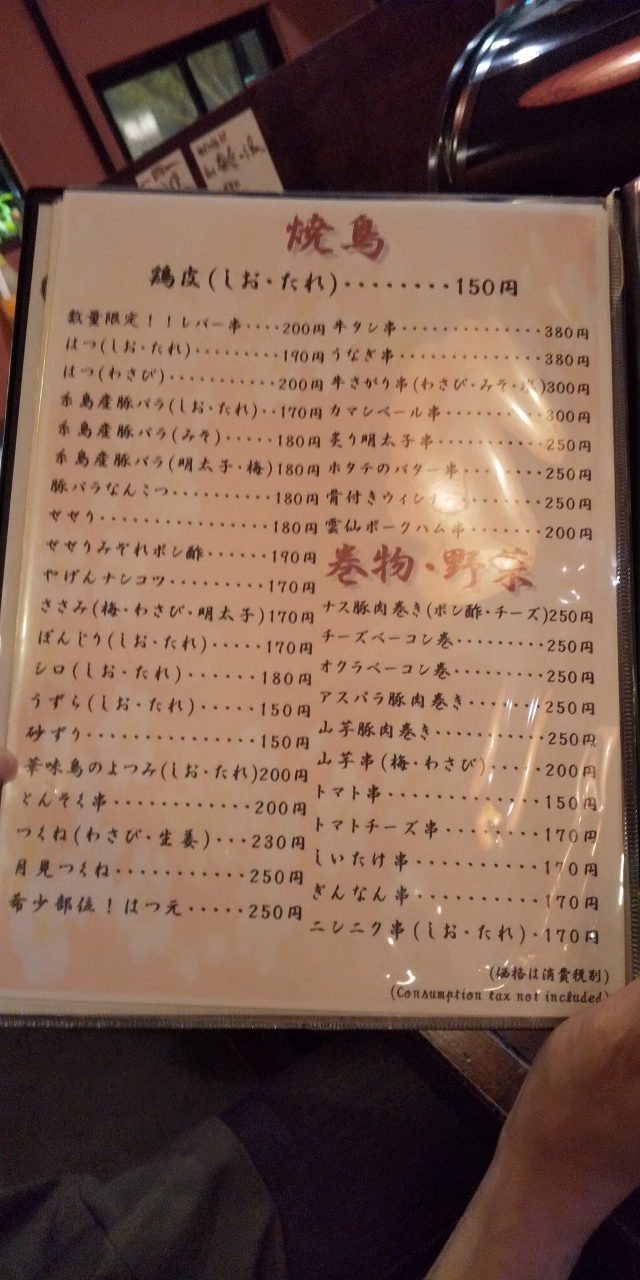 焼鳥
鶏皮(しお・たれ)・・・・・・・・150円
数量限定!!レバー串・・・・200円
はつ(しお・たれ)・・・・・・・・・190円
はつ(わさび)・・・・・・・・・・・・200円
糸島産豚バラ(しお・たれ)・・170円
糸島産豚バラ(みそ)・・・・・180円
糸島産豚バラ(明太子・梅)180円
豚バラなんこつ・・・・・・・・・・・180円
せせり・・・・・・・・・・・・・・・・・180円
せせりみぞれポン酢・・・・・・190円
やげんナンコツ・・・・・・・・・・170円
ささみ(梅・わさび・明太子)170円
ぼんじり(しお・たれ)・・・・・170円
シロ(しお・たれ)・・・・・・・180円
うずら(しお・たれ)・・・・・150円
砂ずり・・・・・・・・・・・・・・・150円
華味鳥のよつみ(しお・たれ)200円
とんそく串・・・・・・・・・・・・200円
つくね(わさび・生姜)・・・230円
月見つくね・・・・・・・・・・・250円
希少部位!はつ元・・・・・250円
牛タン串・・・・・・・・・・・・・・・380円
うなぎ串・・・・・・・・・・・・・・・380円
牛さがり串(わさび・みそ・塩)300円
カマンベール串・・・・・・・・・・300円
炙り明太子串・・・・・・・・・・・250円
ホタテのバター串・・・・・・・・250円
骨付きウィンナー・・・・・・・・250円
雲仙ポークハム串・・・・・・・・200円
巻物・野菜
ナス豚肉巻き(ポン酢・チーズ)250円
チーズベーコン巻・・・・・・・・・250円
オクラベーコン巻・・・・・・・・・250円
アスパラ豚肉巻き・・・・・・・・250円
山芋豚肉巻き・・・・・・・・・・・250円
山芋串(梅・わさび)・・・・・200円
トマト串・・・・・・・・・・・・・・・150円
トマトチーズ串・・・・・・・・・・170円
しいたけ串・・・・・・・・・・・・170円
ぎんなん串・・・・・・・・・・・・170円
ニンニク串(しお・たれ)・170円
(価格は消費税別)
(Consumption tax not included)